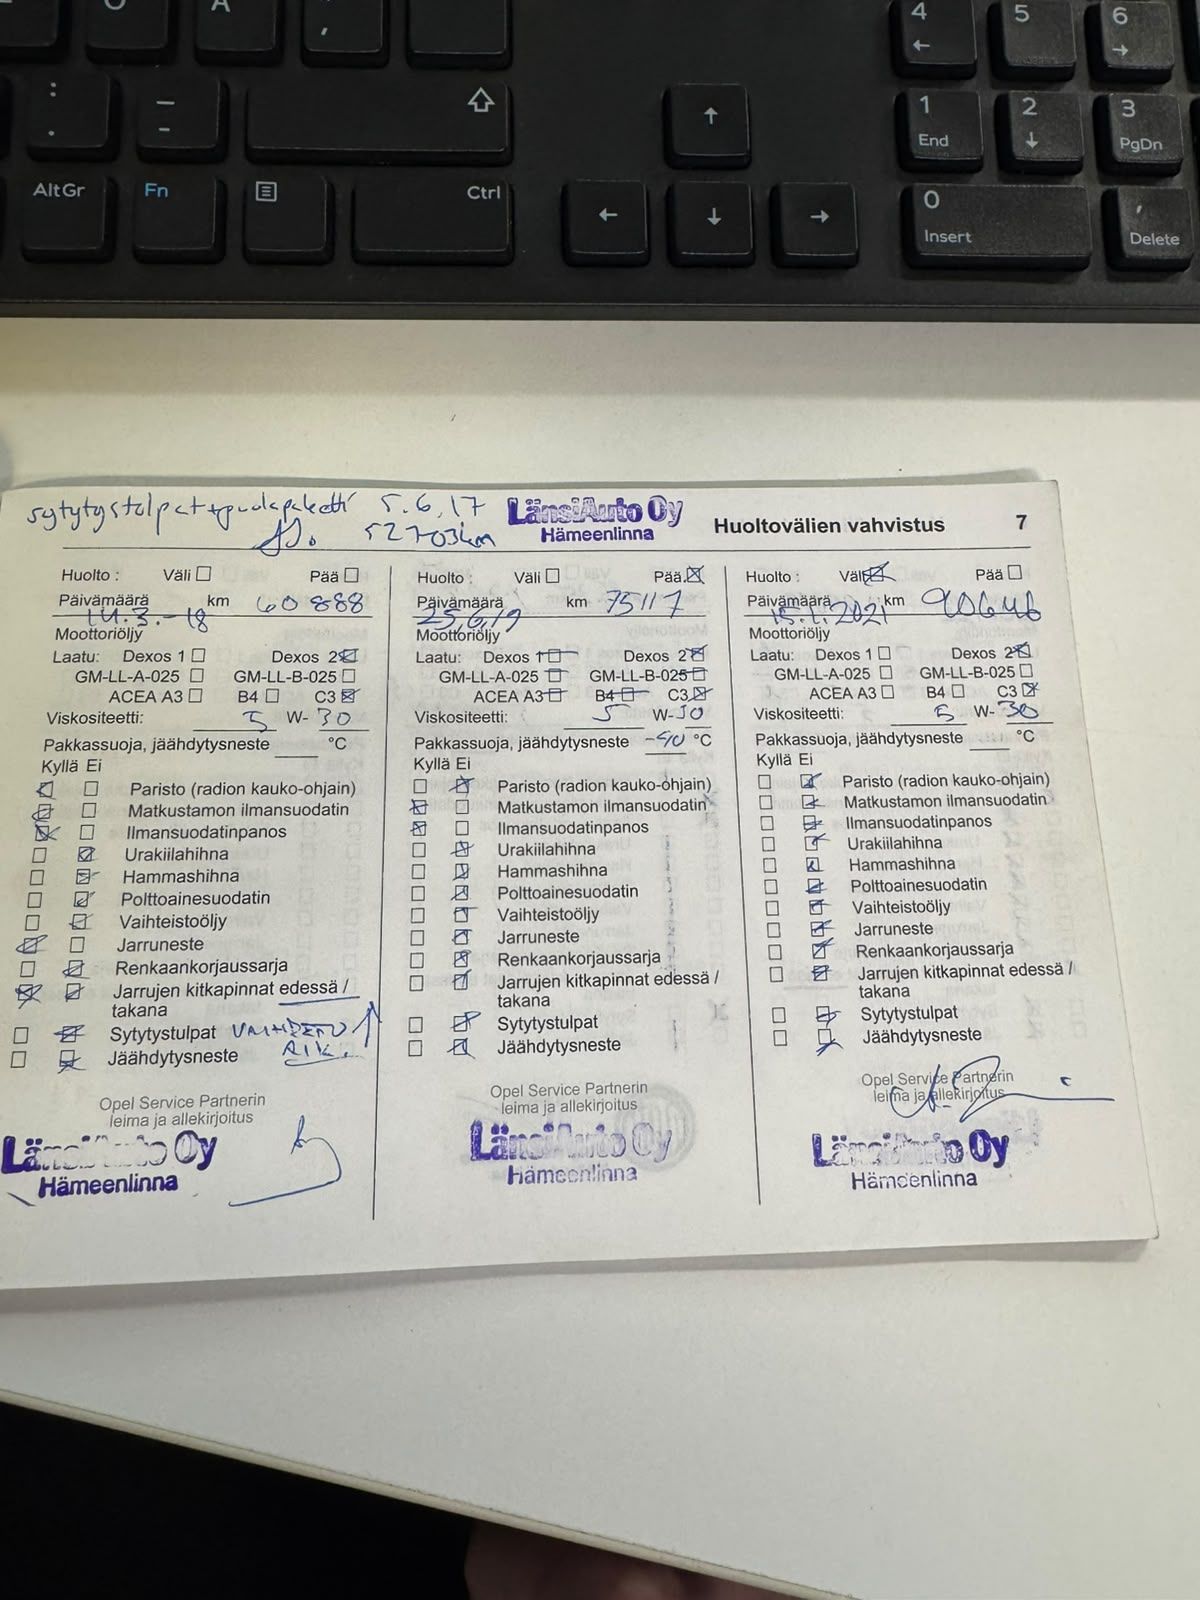 O
A
,
4
5
6
←
→
:
.
_
-
1
End
2
↓
3
PgDn
↑
AltGr
Fn
Ctrl
←
↓
→
0
Insert
,
Delete
sytytystulpat+puolapaketti 5.6.17
52703km
LänsiAuto Oy
Hämeenlinna
Huoltovälien vahvistus 7
Huolto : Väli Pää
Päivämäärä km 60888
14.3.-18
Moottoriöljy
Laatu: Dexos 1 Dexos 2
GM-LL-A-025 GM-LL-B-025
ACEA A3 B4 C3
Viskositeetti: 5 W- 30
Pakkassuoja, jäähdytysneste °C
Kyllä Ei
Paristo (radion kauko-ohjain)
Matkustamon ilmansuodatin
Ilmansuodatinpanos
Urakiilahihna
Hammashihna
Polttoainesuodatin
Vaihteistoöljy
Jarruneste
Renkaankorjaussarja
Jarrujen kitkapinnat edessä /
takana
Sytytystulpat VAIHDETTU
AIK.
Jäähdytysneste
Opel Service Partnerin
leima ja allekirjoitus
LänsiAuto Oy
Hämeenlinna
Huolto : Väli Pää
Päivämäärä km 75117
25.6.19
Moottoriöljy
Laatu: Dexos 1 Dexos 2
GM-LL-A-025 GM-LL-B-025
ACEA A3 B4 C3
Viskositeetti: 5 W-30
Pakkassuoja, jäähdytysneste -40 °C
Kyllä Ei
Paristo (radion kauko-ohjain)
Matkustamon ilmansuodatin
Ilmansuodatinpanos
Urakiilahihna
Hammashihna
Polttoainesuodatin
Vaihteistoöljy
Jarruneste
Renkaankorjaussarja
Jarrujen kitkapinnat edessä /
takana
Sytytystulpat
Jäähdytysneste
Opel Service Partnerin
leima ja allekirjoitus
LänsiAuto Oy
Hämeenlinna
Huolto : Väli Pää
Päivämäärä km 90646
15.1.2021
Moottoriöljy
Laatu: Dexos 1 Dexos 2
GM-LL-A-025 GM-LL-B-025
ACEA A3 B4 C3
Viskositeetti: 5 W- 30
Pakkassuoja, jäähdytysneste °C
Kyllä Ei
Paristo (radion kauko-ohjain)
Matkustamon ilmansuodatin
Ilmansuodatinpanos
Urakiilahihna
Hammashihna
Polttoainesuodatin
Vaihteistoöljy
Jarruneste
Renkaankorjaussarja
Jarrujen kitkapinnat edessä /
takana
Sytytystulpat
Jäähdytysneste
Opel Service Partnerin
leima ja allekirjoitus
LänsiAuto Oy
Hämeenlinna